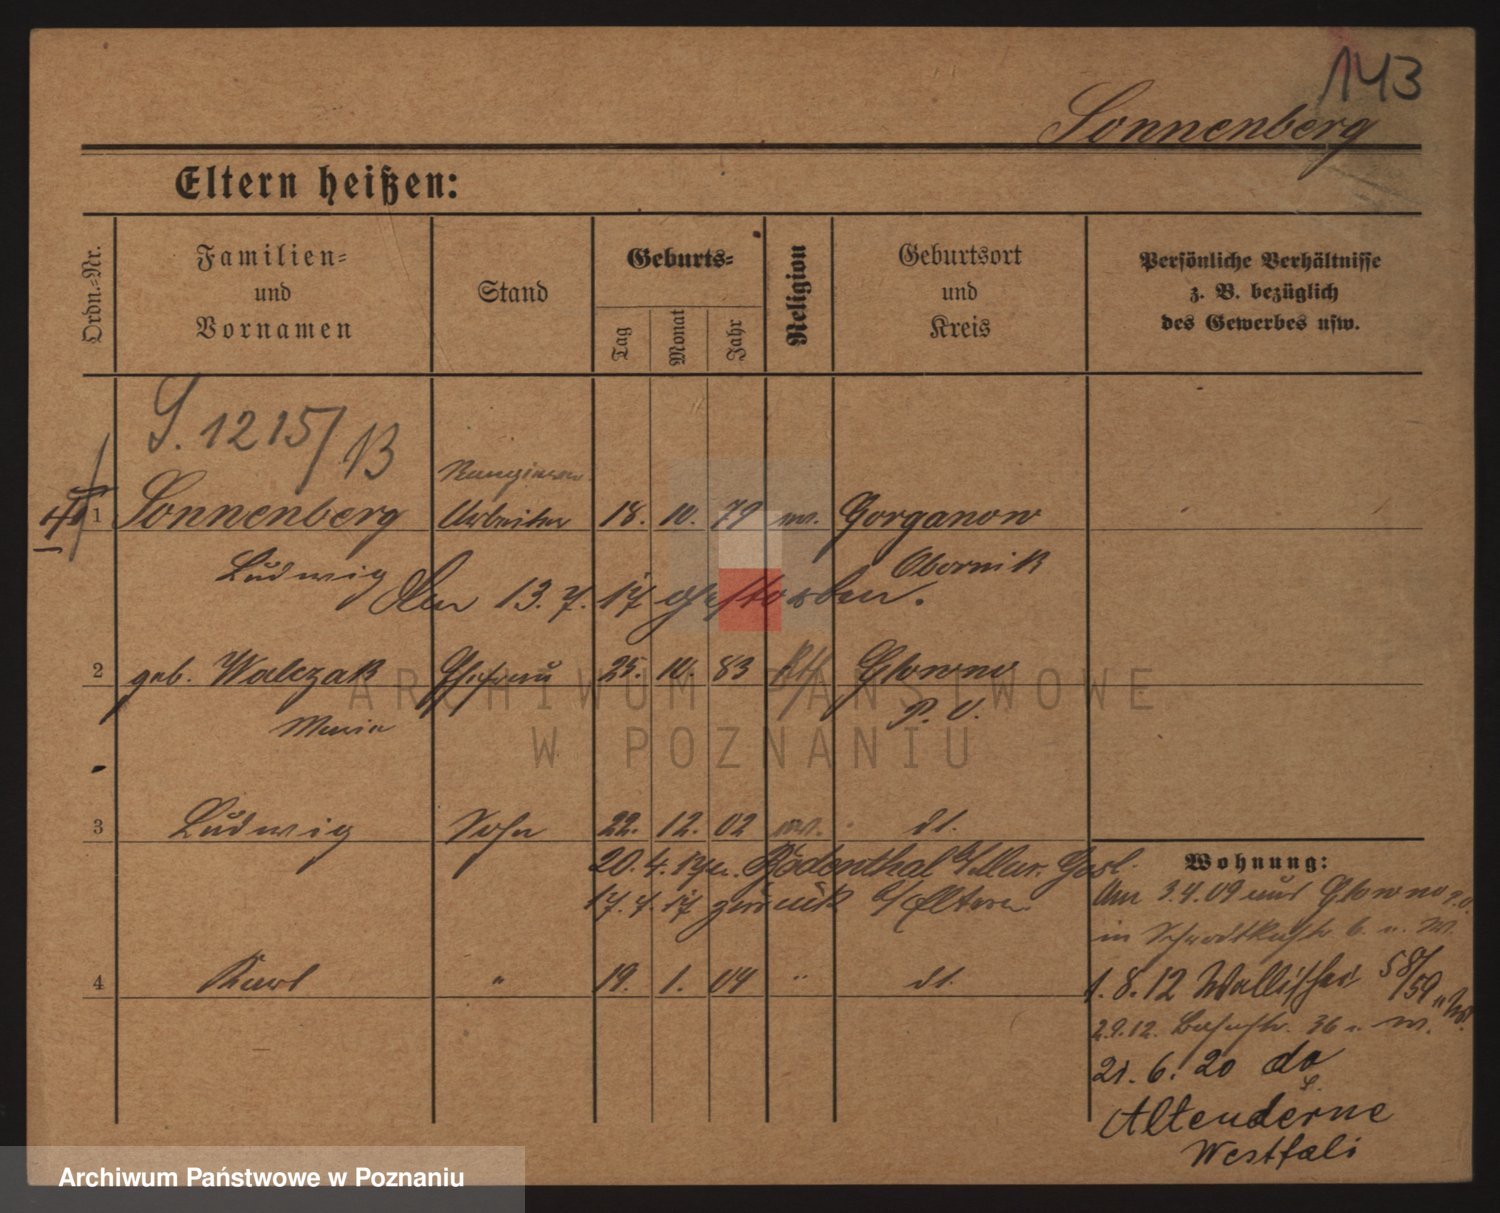 143
Sonnenberg
Eltern heißen:
Ordn.-Nr.
Familien-
und
Vornamen
Stand
Geburts-
Tag
Monat
Jahr
Religion
Geburtsort
und
Kreis
Persönliche Verhältnisse
z. B. bezüglich
des Gewerbes usw.
S. 1215/13
Rangierer
1 Sonnenberg Arbeiter 18. 10. 79 ev. Gorganow
Ludwig Obornik
Am 13. 7. 17 gestorben.
2 geb. Walczak Ehefrau 25. 10. 83 kth Glowno
Maria P. O.
3 Ludwig Sohn 22. 12. 02 ev. dt.
20. 4. Rodenthal
17. 7. 17 zurück b/Eltern
4 Karl " 19. 1. 04 " dt.
Wohnung:
Am 3.4.09 aus Glowno P.O.
in 6. u. W.
1. 8. 12 Wallischei 58/59
2.9.12. Bahnstr. 36 W.
21. 6. 20 do
Altenderne
Westfali
ARCHIWUM PAŃSTWOWE
W POZNANIU
Archiwum Państwowe w Poznaniu